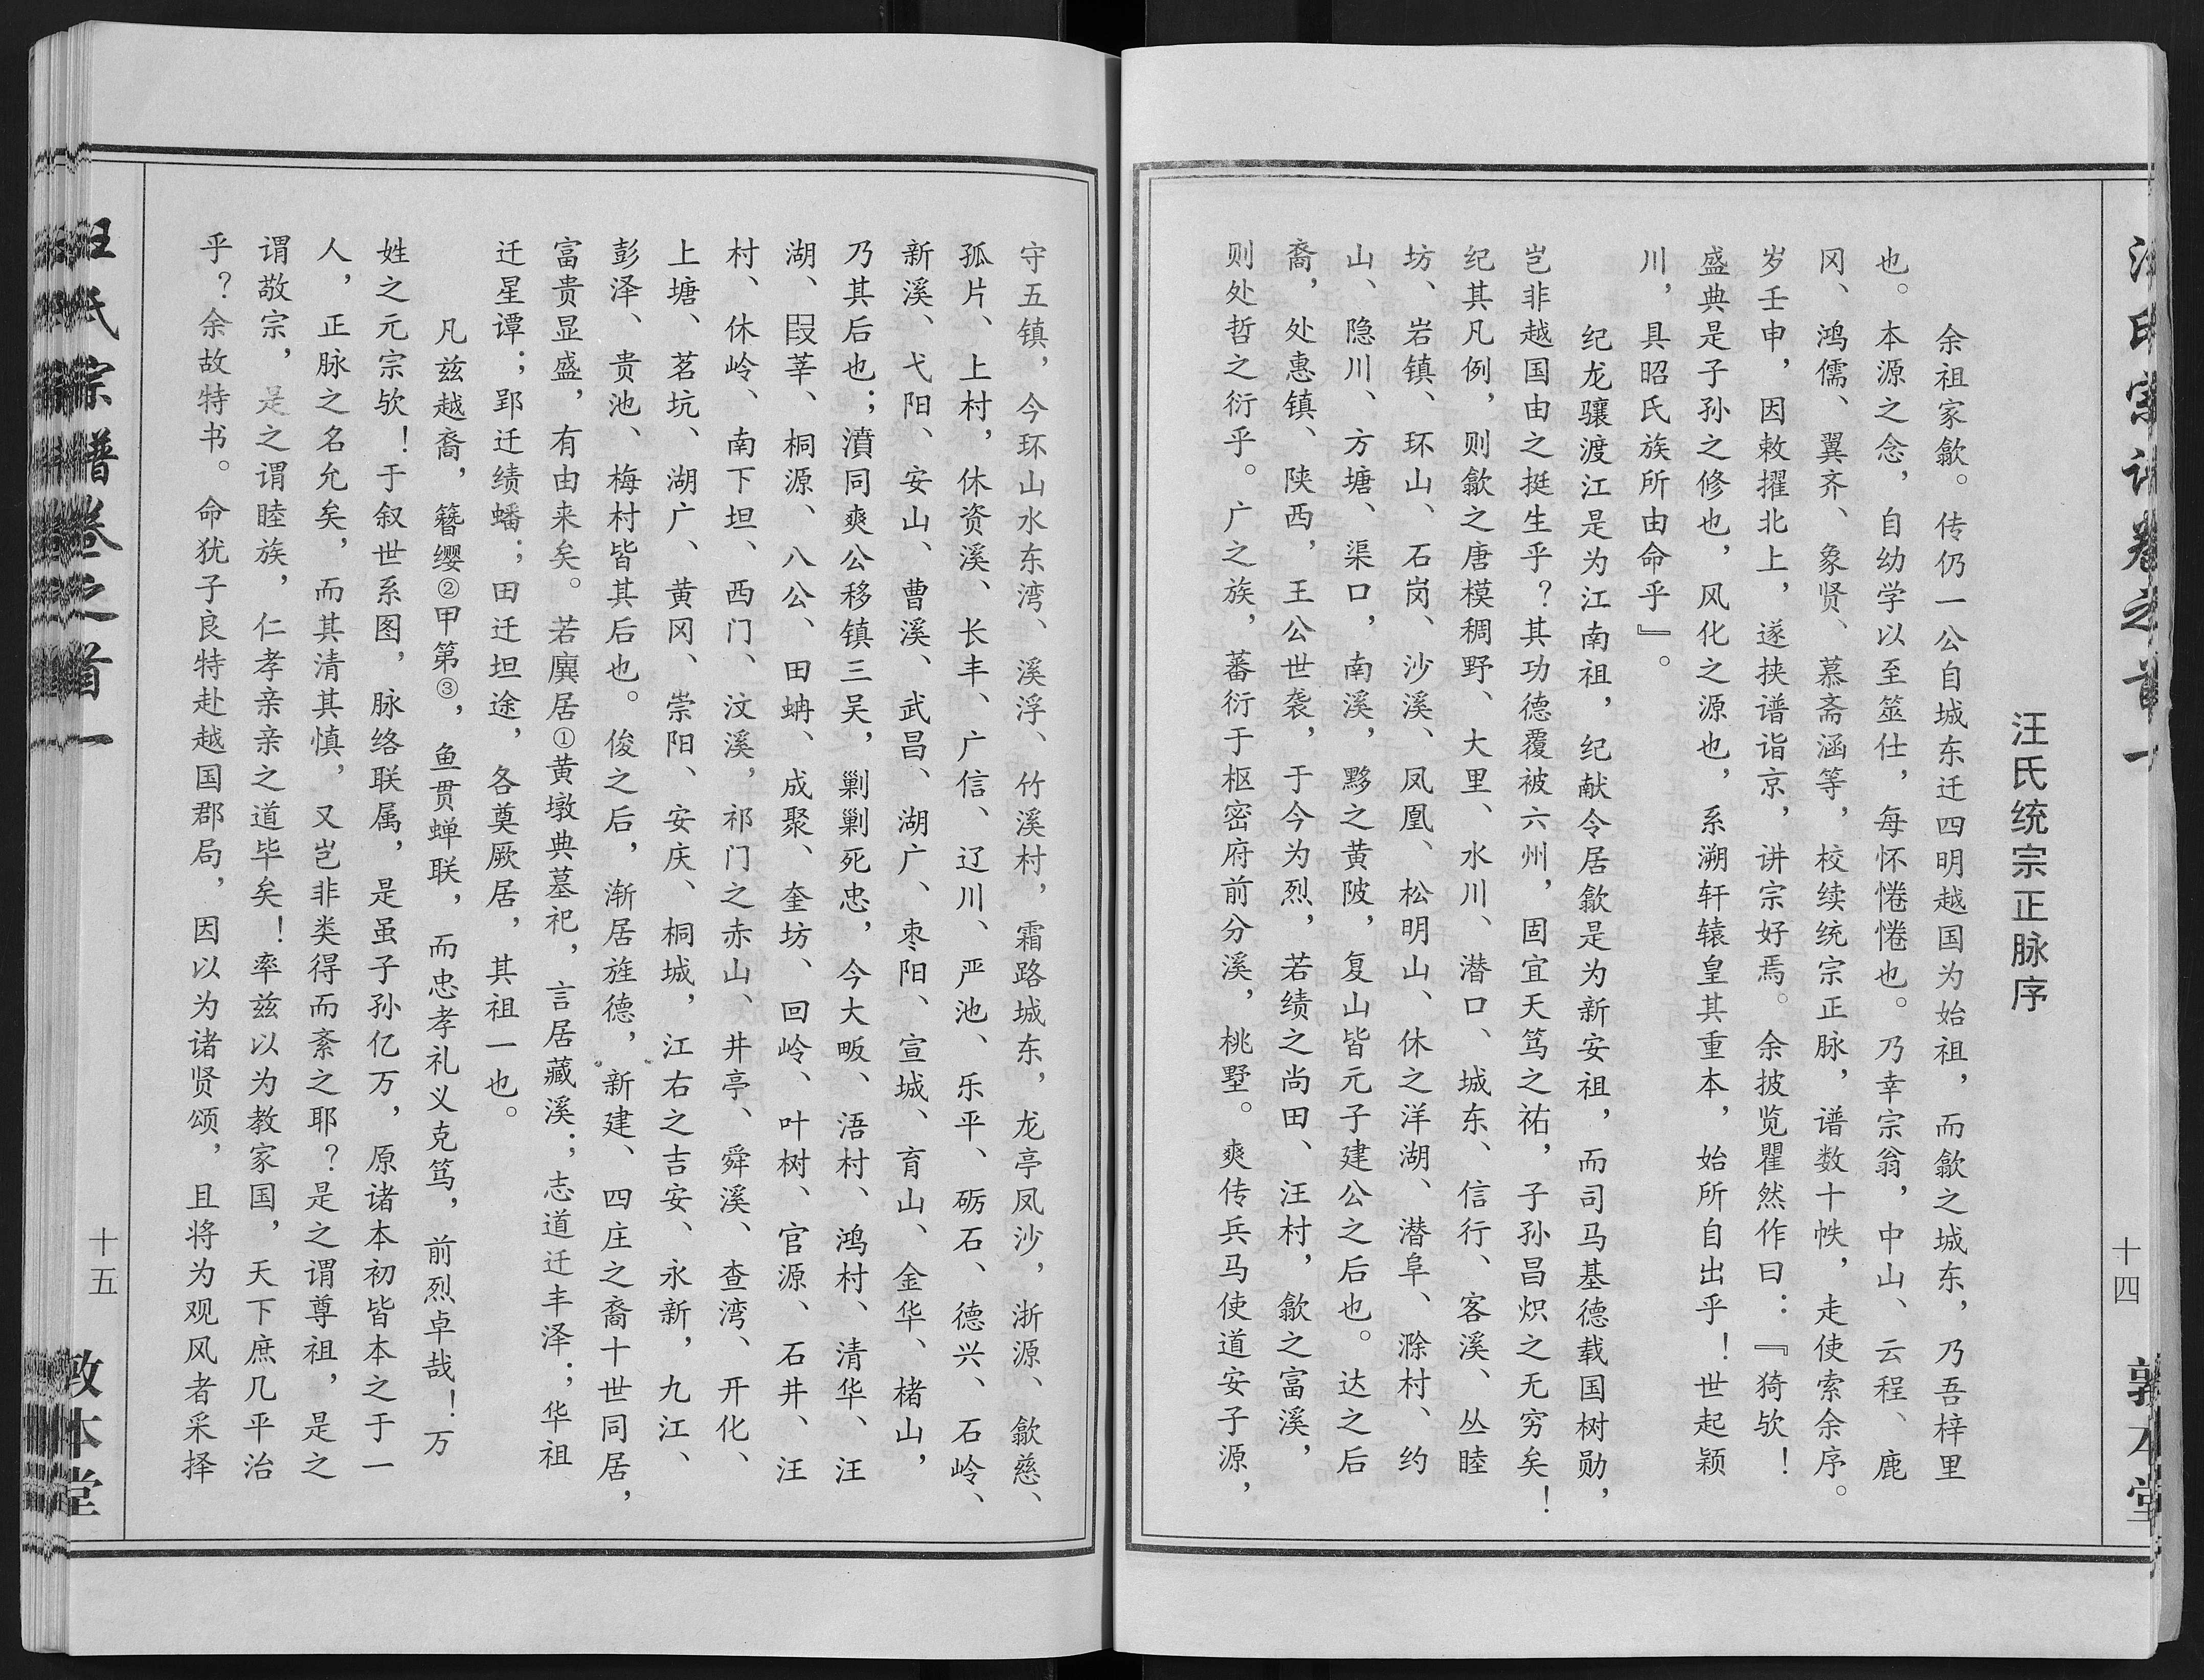 汪氏宗谱卷之首一
十四
敦本堂
汪氏统宗正脉序
余祖家歙。传仍一公自城东迁四明越国为始祖，而歙之城东，乃吾梓里
也。本源之念，自幼学以至筮仕，每怀惓惓也。乃幸宗翁，中山、云程、鹿
冈、鸿儒、翼齐、象贤、慕斋涵等，校续统宗正脉，谱数十帙，走使索余序。
岁壬申，因敕擢北上，遂挟谱诣京，讲宗好焉。余披览瞿然作曰：『猗欤！
盛典是子孙之修也，风化之源也，系溯轩辕皇其重本，始所自出乎！世起颖
川，具昭氏族所由命乎』。
纪龙骧渡江是为江南祖，纪献令居歙是为新安祖，而司马基德载国树勋，
岂非越国由之挺生乎？其功德覆被六州，固宜天笃之祐，子孙昌炽之无穷矣！
纪其凡例，则歙之唐模稠野、大里、水川、潜口、城东、信行、客溪、丛睦
坊、岩镇、环山、石岗、沙溪、凤凰、松明山、休之洋湖、潜阜、滁村、约
山、隐川、方塘、渠口，南溪，黟之黄陂，复山皆元子建公之后也。达之后
裔，处惠镇、陕西，王公世袭，于今为烈，若绩之尚田、汪村，歙之富溪，
则处哲之衍乎。广之族，蕃衍于枢密府前分溪，桃墅。爽传兵马使道安子源，
守五镇，今环山水东湾、溪浮、竹溪村，霜路城东，龙亭凤沙，浙源、歙慈、
孤片、上村，休资溪、长丰、广信、辽川、严池、乐平、砺石、德兴、石岭、
新溪、弋阳、安山、曹溪、武昌、湖广、枣阳、宣城、育山、金华、楮山，
乃其后也；濆同爽公移镇三吴，剿剿死忠，今大畈、浯村、鸿村、清华、汪
湖、叚莘、桐源、八公、田蚺、成聚、奎坊、回岭、叶树、官源、石井、汪
村、休岭、南下坦、西门、汶溪，祁门之赤山、井亭、舜溪、查湾、开化、
上塘、茗坑、湖广、黄冈、崇阳、安庆、桐城，江右之吉安、永新，九江、
彭泽、贵池、梅村皆其后也。俊之后，渐居旌德，新建、四庄之裔十世同居，
富贵显盛，有由来矣。若廙居①黄墩典墓祀，言居藏溪；志道迁丰泽；华祖
迁星谭；郢迁绩蟠；田迁坦途，各奠厥居，其祖一也。
凡兹越裔，簪缨②甲第③，鱼贯蝉联，而忠孝礼义克笃，前烈卓哉！万
姓之元宗欤！于叙世系图，脉络联属，是虽子孙亿万，原诸本初皆本之于一
人，正脉之名允矣，而其清其慎，又岂非类得而紊之耶？是之谓尊祖，是之
谓敬宗，是之谓睦族，仁孝亲亲之道毕矣！率兹以为教家国，天下庶几平治
乎？余故特书。命犹子良特赴越国郡局，因以为诸贤颂，且将为观风者采择
汪氏宗谱卷之首一
十五
敦本堂